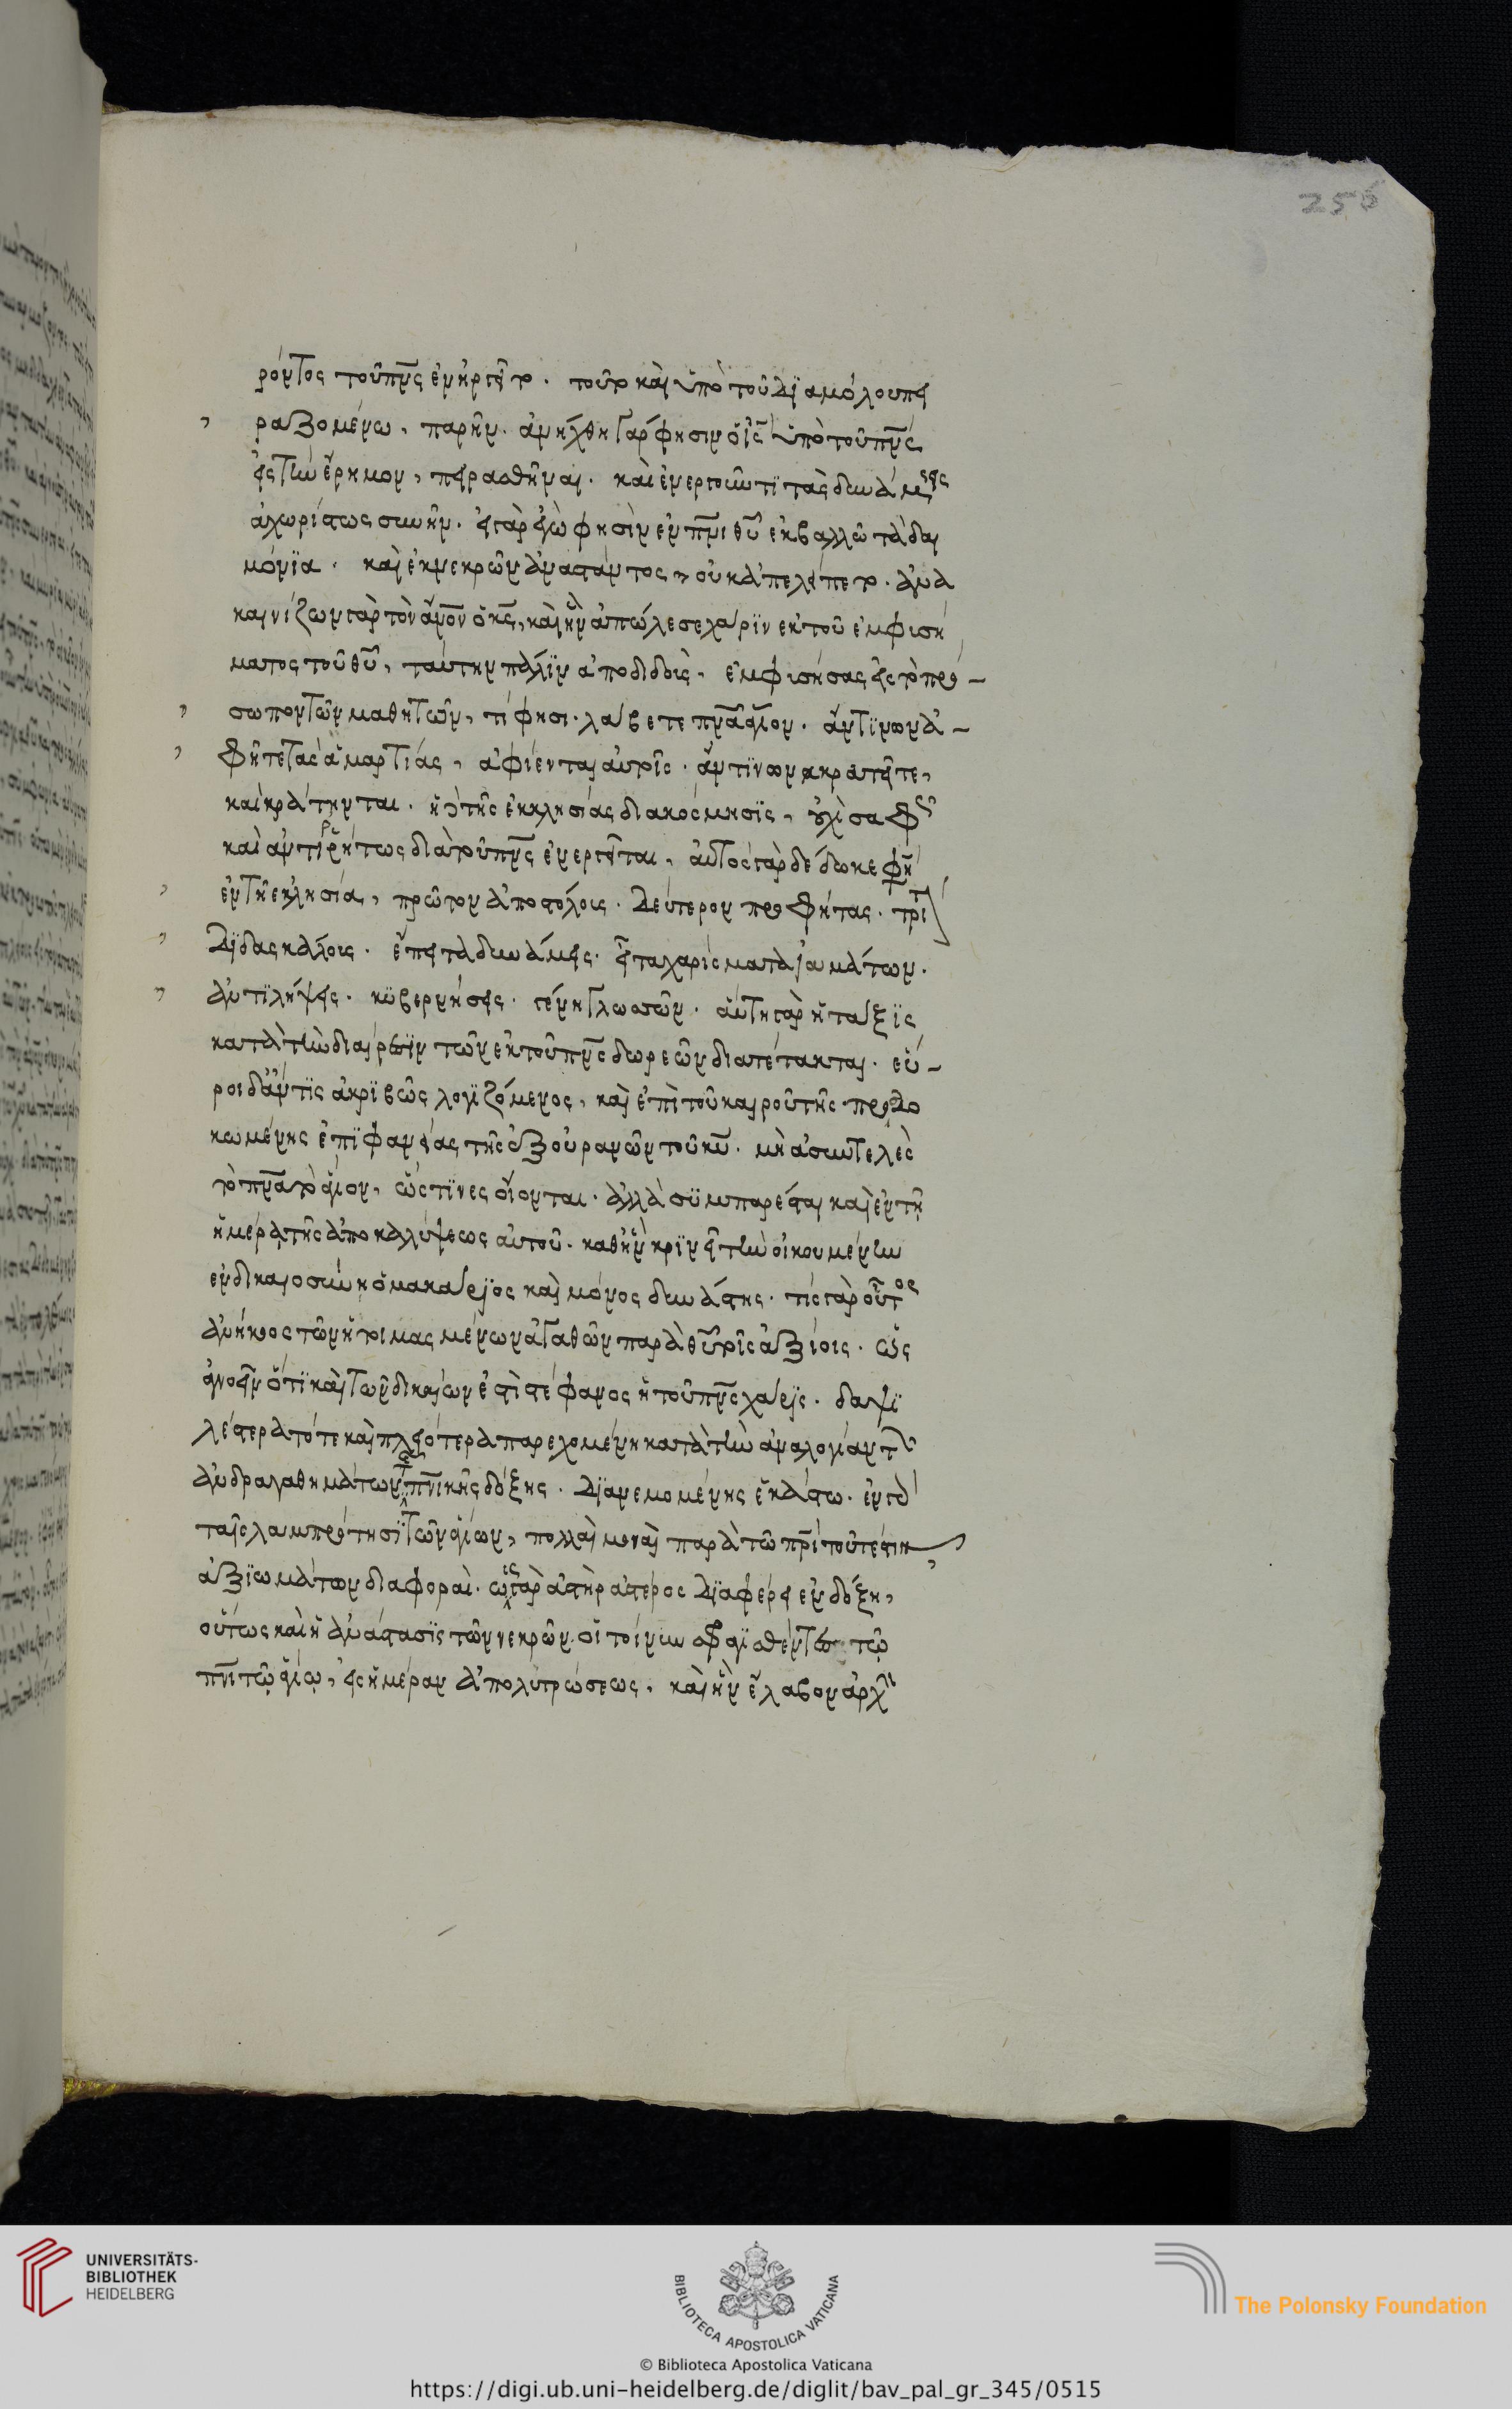 256
ρόντος τοῦ πν̅ς ἐνηργεῖτο. τοῦτο καὶ ὑπὸ τοῦ διαβόλου πει
ραζομένω, παρῆν. ἀνήχθη γάρ φησιν ὁ ι̅ς̅ ὑπὸ τοῦ πν̅ς
εἰς τὴν ἔρημον, πειρασθῆναι. καὶ ἐνεργοῦντι τὰς δυνάμεις
ἀχωρίστως συνῆν. εἰ γὰρ ἐγὼ φησὶν ἐν πν̅ι θ̅υ̅ ἐκβαλλῶ τὰ δαι
μόνϊα. καὶ ἐκ νεκρῶν ἀναστάντος, οὐκ ἀπελείπετο. ἀνα
καινίζων γὰρ τὸν ἄν̅ο̅ν ὁ κ̅ς̅, καὶ ἣν ἀπώλεσε χάριν ἐκ τοῦ ἐμφυσή
ματος τοῦ θ̅υ̅, ταύτην πάλιν ἀποδιδοὺς, ἐμφυσήσας εἰς τὸ πρό-
σωπον τῶν μαθητῶν, τί φησι. λάβετε πν̅α ἅγιον. ἄντινων ἀ-
φῆτε τὰς ἁμαρτίας, ἀφίενται αὐτοῖς. ἄντινων κρατεῖτε,
καὶ κράτηνται. ἡ δὲ τῆς ἐκκλησίας διακόσμησις, οὐχὶ σαφῶς
καὶ ἀντιρρήτως διὰ τοῦ πν̅ς ἐνεργεῖται, αὐτὸς γὰρ δέδωκε φη
ἐν τῆ ἐκλησία, πρῶτον ἀποστόλοις. δεύτερον προφήτας. τρίτ
διδασκάλοις. ἔπειτα δυνάμεις. εἶτα χαρίσματα ἰαμάτων.
ἀντιλήψεις. κυβερνήσεις. γένη γλωσσῶν. αὕτη γὰρ ἡ τάξις
κατὰ τὴν διαίρεσιν τῶν ἐκ τοῦ πν̅ς δωρεῶν διατέτακται. εὕ-
ροι δἄν τις ἀκριβῶς λογιζόμενος, καὶ ἐπὶ τοῦ καιροῦ τῆς προσδο
κωμένης ἐπιφανείας τῆς ἐξ οὐρανῶν τοῦ κ̅υ̅. μὴ ἀσυντελὲς
τὸ πν̅α τὸ ἅγιον, ὥς τινες οἴονται. ἀλλὰ συμπαρέσται καὶ ἐν τῆ
ἡμέρα τῆς ἀποκαλύψεως αὐτοῦ. καθἣν κρινεῖ τὴν οἰκουμένην
ἐν δικαιοσύνη ὁ μακάριος καὶ μόνος δυνάστης. τίς γὰρ οὕτος
ἀνήκοος τῶν ἡτοιμασμένων ἀγαθῶν παρὰ θ̅υ̅ τοῖς ἀξίοις. ὡς
ἀγνοεῖν ὅτι καὶ τῶν δικαίων ἐστὶ στέφανος ἡ τοῦ πν̅ς χάρις. δαψι
λέστερα τότε καὶ πλειότερα παρεχομένη κατὰ τὴν ἀναλογίαν τῶν
ἀνδραγαθημάτων τῆς πν̅ικῆς δόξης. διανεμομένης ἑκάστω. ἐν γὰ
ταῖς λαμπρότησι τῶν ἁγίων, πολλαὶ μοναὶ παρὰ τῶ πρ̅ί τοῦτέστιν
ἀξιωμάτων διαφοραί. ὡς γὰρ ἀστὴρ ἀστέρος διαφέρει ἐν δόξη,
οὕτως καὶ ἡ ἀνάστασις τῶν νεκρῶν. οἱ τοίνυν σφραγισθέντες τῶ
πν̅ι τῶ ἁγίω, εἰς ἡμέραν ἀπολυτρώσεως, καὶ ἣν ἔλαβον ἀρχὴν
UNIVERSITÄTS-
BIBLIOTHEK
HEIDELBERG
BIBLIOTECA APOSTOLICA VATICANA
The Polonsky Foundation
© Biblioteca Apostolica Vaticana
https://digi.ub.uni-heidelberg.de/diglit/bav_pal_gr_345/0515